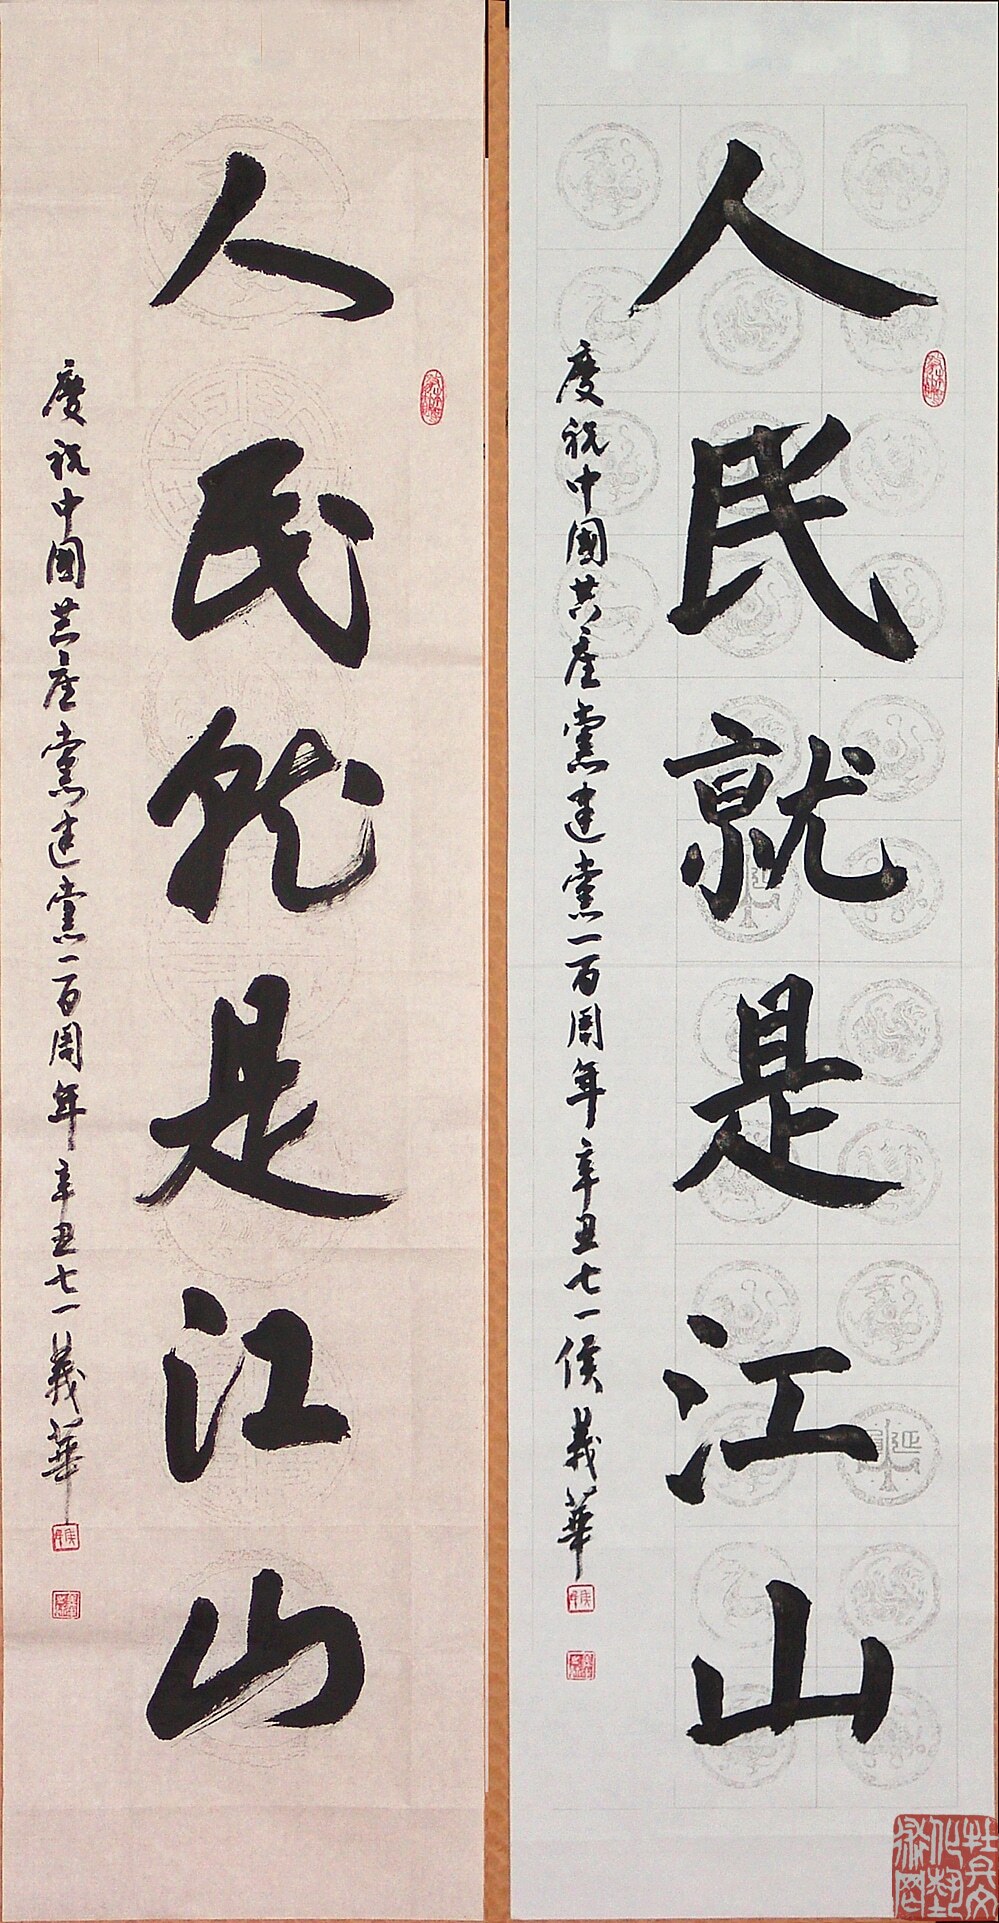 人民就是江山
慶祝中國共産黨建黨一百周年辛丑七一侯義華
人民就是江山
慶祝中國共産黨建黨一百周年辛丑七一義華